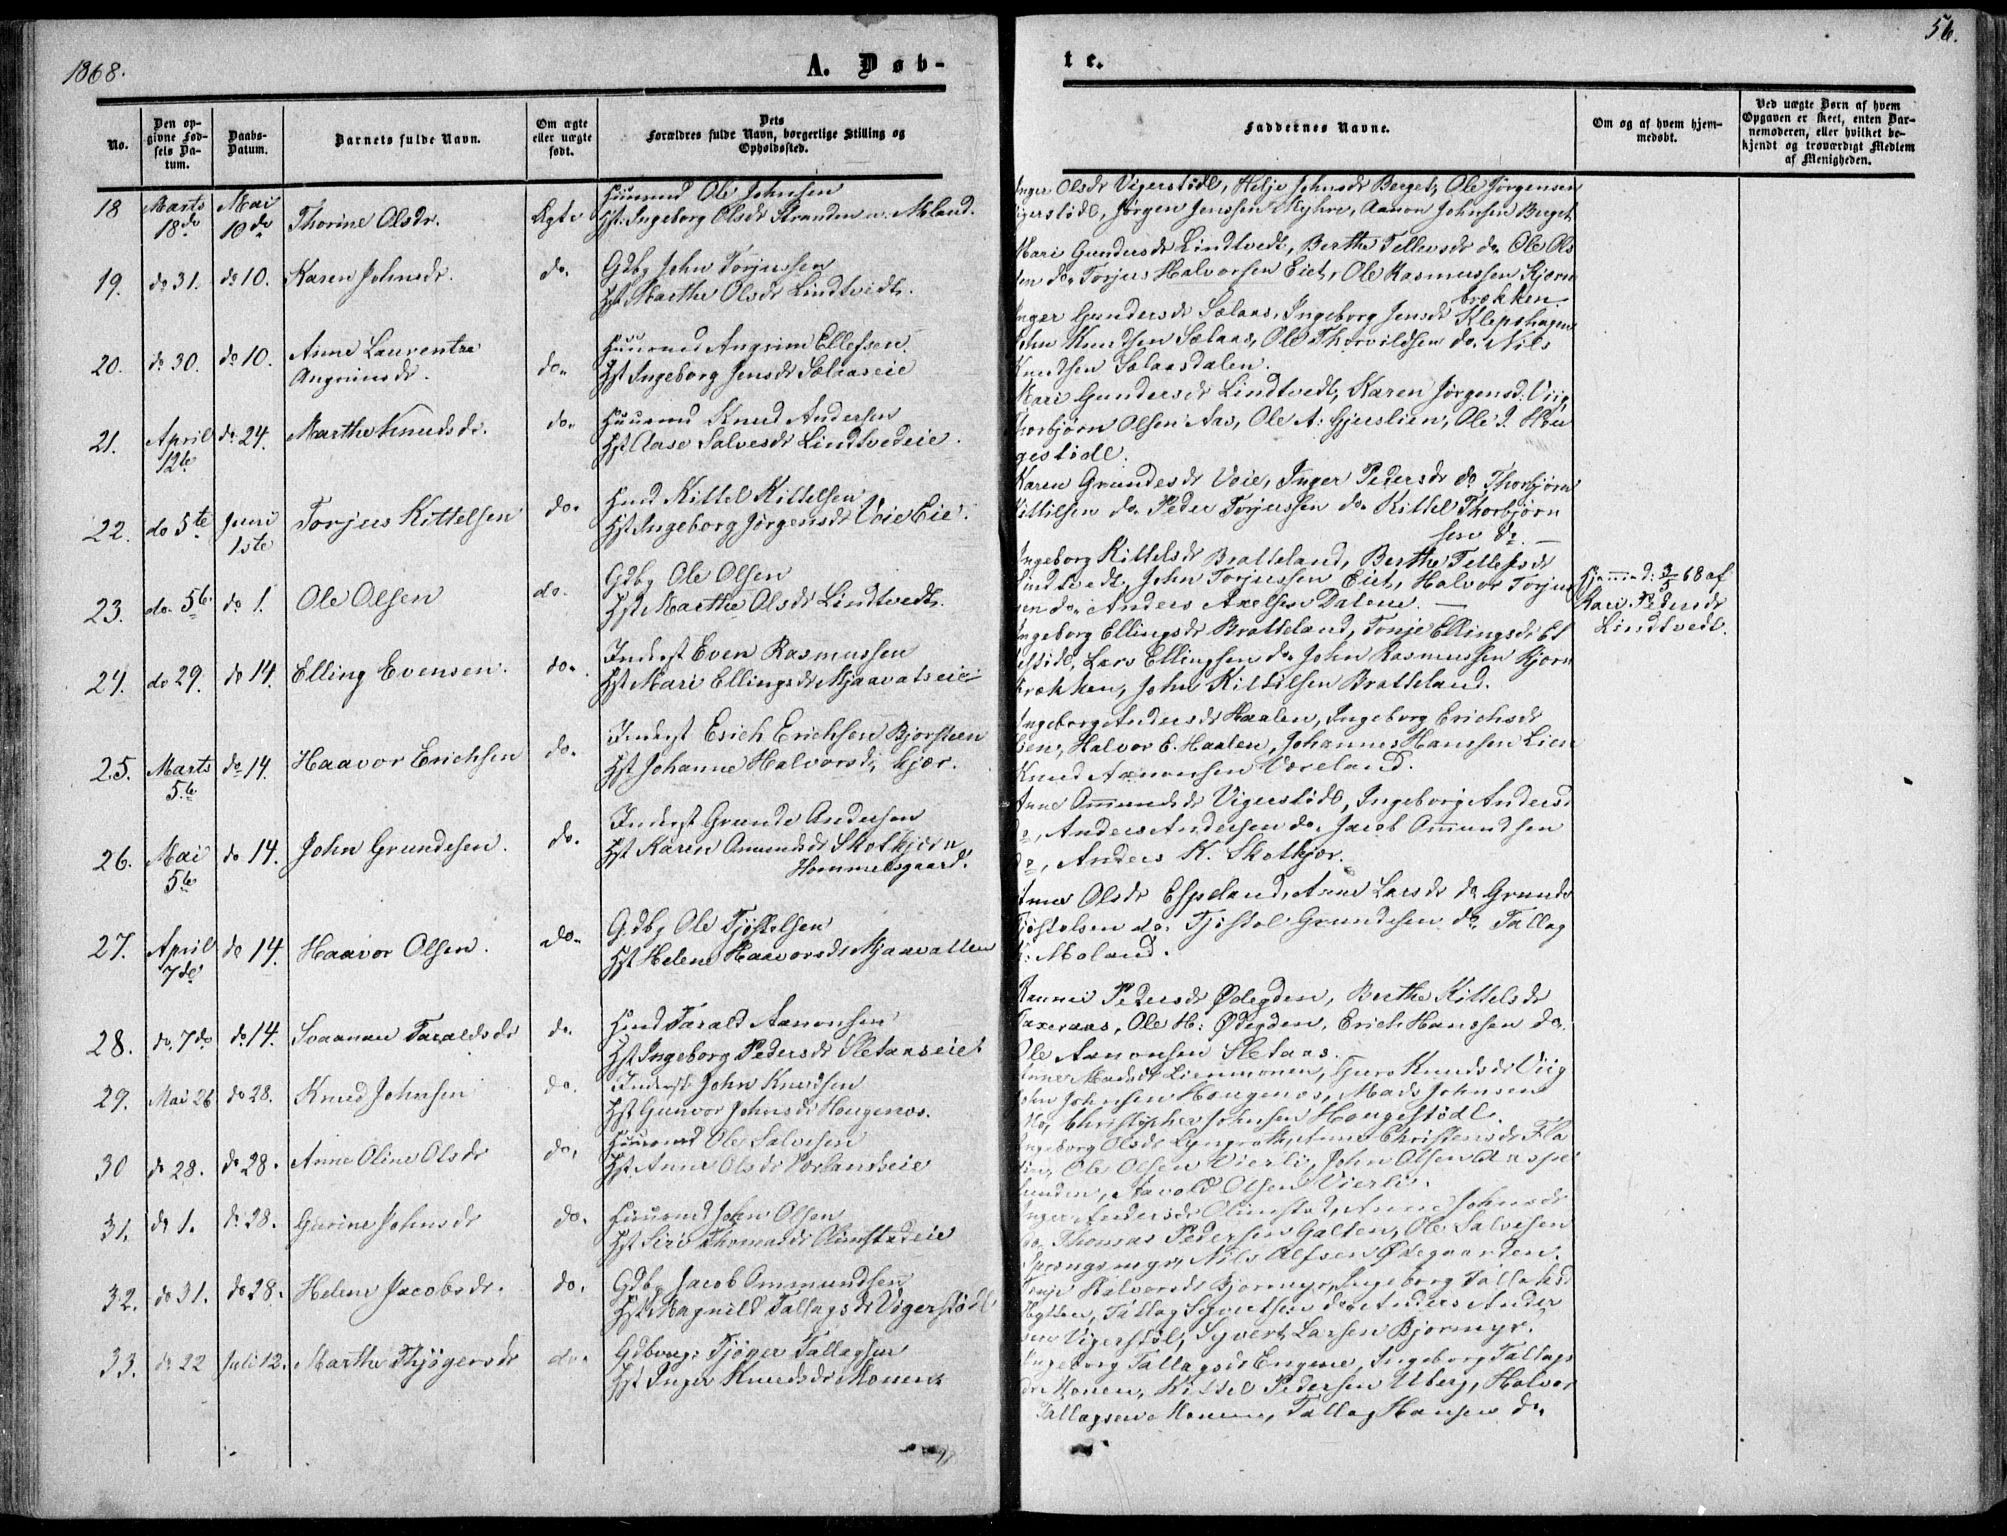 1868.
A. Døb-
te.
56.
No.
Den op-
givne Fød-
sels Da-
tum.
Daabs-
Datum.
Barnets fulde Navn.
Om ægte
eller uægte
født.
Dets
Forældres fulde Navn, borgerlige Stilling og
Opholdssted.
Faddernes Navne.
Om og af hvem hjem-
medøbt.
Ved uægte Børn af hvem
Opgaven er skeet, enten Bar-
nemoderen, eller hvilket be-
kjendt og troværdigt Medlem
af Menigheden.
18 Marts Mai
18de 10de Thorine Olsdr. Ægte
Huusmd Ole Johnsen
Hst. Ingeborg Olsdr Stranden v. Moland.
Inger Olsdr Vigerstødl, Helje Johnsdr Berget, Ole Jørgensen
Vigerstødl, Jørgen Jenssen Myhre, Aanon Johnsen Berget
19. do 31. do 10. Karen Johnsdr. do.
Gdbg John Torjussen
Hst Marthe Olsdr Lindtvedt.
Mari Gundersdr Lindtvedt, Berthe Tellevsdr do Ole Ols
sen do, Torjus Halvorsen Eiet, Ole Rasmussen Kjørn
brækken.
20. do 30. do 10. Anne Laurentza
Angrimsdr. do.
Huusmd Angrim Ellefsen
Hst Ingeborg Jensdr Sølaaseie
Inger Gundersdr Sølaas, Ingeborg Jensdr Klepshagen
John Knudsen Sølaas, Ole Thorvildsen do. Nils
Knudsen Sølaasdalen.
21. April
12te do 24. Marthe Knudsdr. do.
Huusmd Knud Andersen
Hst Aase Salvesdr Lindtvedeie.
Mari Gundersdr Lindtvedt, Karen Jørgensd. Viig
Thorbjørn Olsen Aas, Ole A. Gjuslien, Ole J. Hou
gestødl.
22. do 5te Juni
1ste Torjus Kittelsen do.
Hmd. Kittel Kittelsen
Hst Ingeborg Jørgensdr Voie Eie.
Karen Grundesdr Voie, Inger Pedersdr do Thorbjørn
Kittilsen do. Peder Torjussen do. Kittel Thorbjørn
sen do.
23. do. 5te do 1. Ole Olsen do.
Gdbg Ole Olsen
Hst Marthe Olsdr Lindtvedt.
Ingeborg Kittelsdr Bratteland, Berthe Tellefsdr
Lindtvedt, John Torjussen Eiet, Halvor Torjus
sen do. Anders Axelsen Dalene.
Hjemmed: 3/5 68 af
Kari Pedersdr
Lindtvedt.
24. do 29. do 14. Elling Evensen. do.
Inderst Even Rasmussen
Hst Mari Ellingsdr Mjaavatseie
Ingeborg Ellingsdr Bratteland, Tonje Ellingsdr
Lars Ellingsen do. John Rasmussen Kjørn
brækken, John Kittilsen Bratteland.
25. Marts
5te do 14. Haavor Erichsen do.
Inderst Erich Erichsen Bjorsteen
Hst Johanne Halvorsd. Kjær.
Ingeborg Andersdr Haalen, Ingeborg Erichsdr
Lien, Halvor E. Haalen, Johannes Hanssen Lien
Knud Aanonsen Væreland.
26. Mai
5te do 14. John Grundesen. do.
Inderst Grunde Andersen
Hst Karen Omundsdr Skotkjør v.
Hommelsgaard.
Anne Ommundsdr Vigerstødl, Ingeborg Anders
do, Anders Andersen do. Jacob Ommundsen
do, Anders K. Skotkjør.
27. April
7de do 14. Haavor Olsen. do.
Gdbg Ole Tjøstelsen
Hst Helene Haavorsdr Mjaavatten
Anne Olsdr Espeland, Anne Larsdr do Grunde
Tjøstolsen do. Tjøstol Grundesen do. Tallag
Moland.
28. do. 7de do 14. Svaanau Taraldsdr do.
Hmd Tarald Aanonsen
Hst Ingeborg Pedersdr Sletaaseiet
Rannei Pedersdr Ødegden, Berthe Kittelsdr
Taxeraas, Ole H. Ødegden, Erich Hanssen do.
Ole Aanonsen Sletaas.
29. Mai 26 do 28. Knud Johnsen do.
Inderst John Knudsen
Hst Gunvor Johnsdr Hougenos.
Anne Madsdr Lienmonen, Guro Knudsdr Viig
John Johnsen Hougenos, Mads Johnsen
do, Christopher Johnsen Hougestødl.
30 do 28. do 28. Anne Oline Olsdr do.
Huusmd Ole Salvesen
Hst Anne Olsdr Vorlandseie
Ingeborg Olsdr Lyngroth, Anne Christensdr Fla
Ole Olsen Vierli, John Olsen Aaspe
lunden, Aavold Olsen Vierli.
31. do 1. do 28. Gurine Johnsdr do.
Huusmd John Olsen
Hst Siri Thomasdr Olimstadeie
Inger Andersdr Olimstad, Anne Johnsdr
do, Thomas Pedersen Galten, Ole Salvesen
Sprangmyr, Nils Alfsen Ødegaarden.
32. do 31. do 28. Helene Jacobsdr. do.
Gdbg Jacob Ommundsen
Hst Magnild Tallagsdr Vigerstødl
Tonje Halvorsdr Bjormyr, Ingeborg Tallaksd
Hytten, Tallag Syvertsen do. Anders Ander
sen Vigerstøl, Syvert Larsen Bjormyr.
33. do 22 Juli 12. Marthe Thjøgersdr do.
Gdbrug: Tjøger Tallagsen
Hst Inger Knudsdr Monen.
Ingeborg Tallagsdr Engene, Ingeborg Tallags
dr Monen, Kittel Pedersen Uberg, Halvor
Tallagsen Monen, Tallag Hansen do.